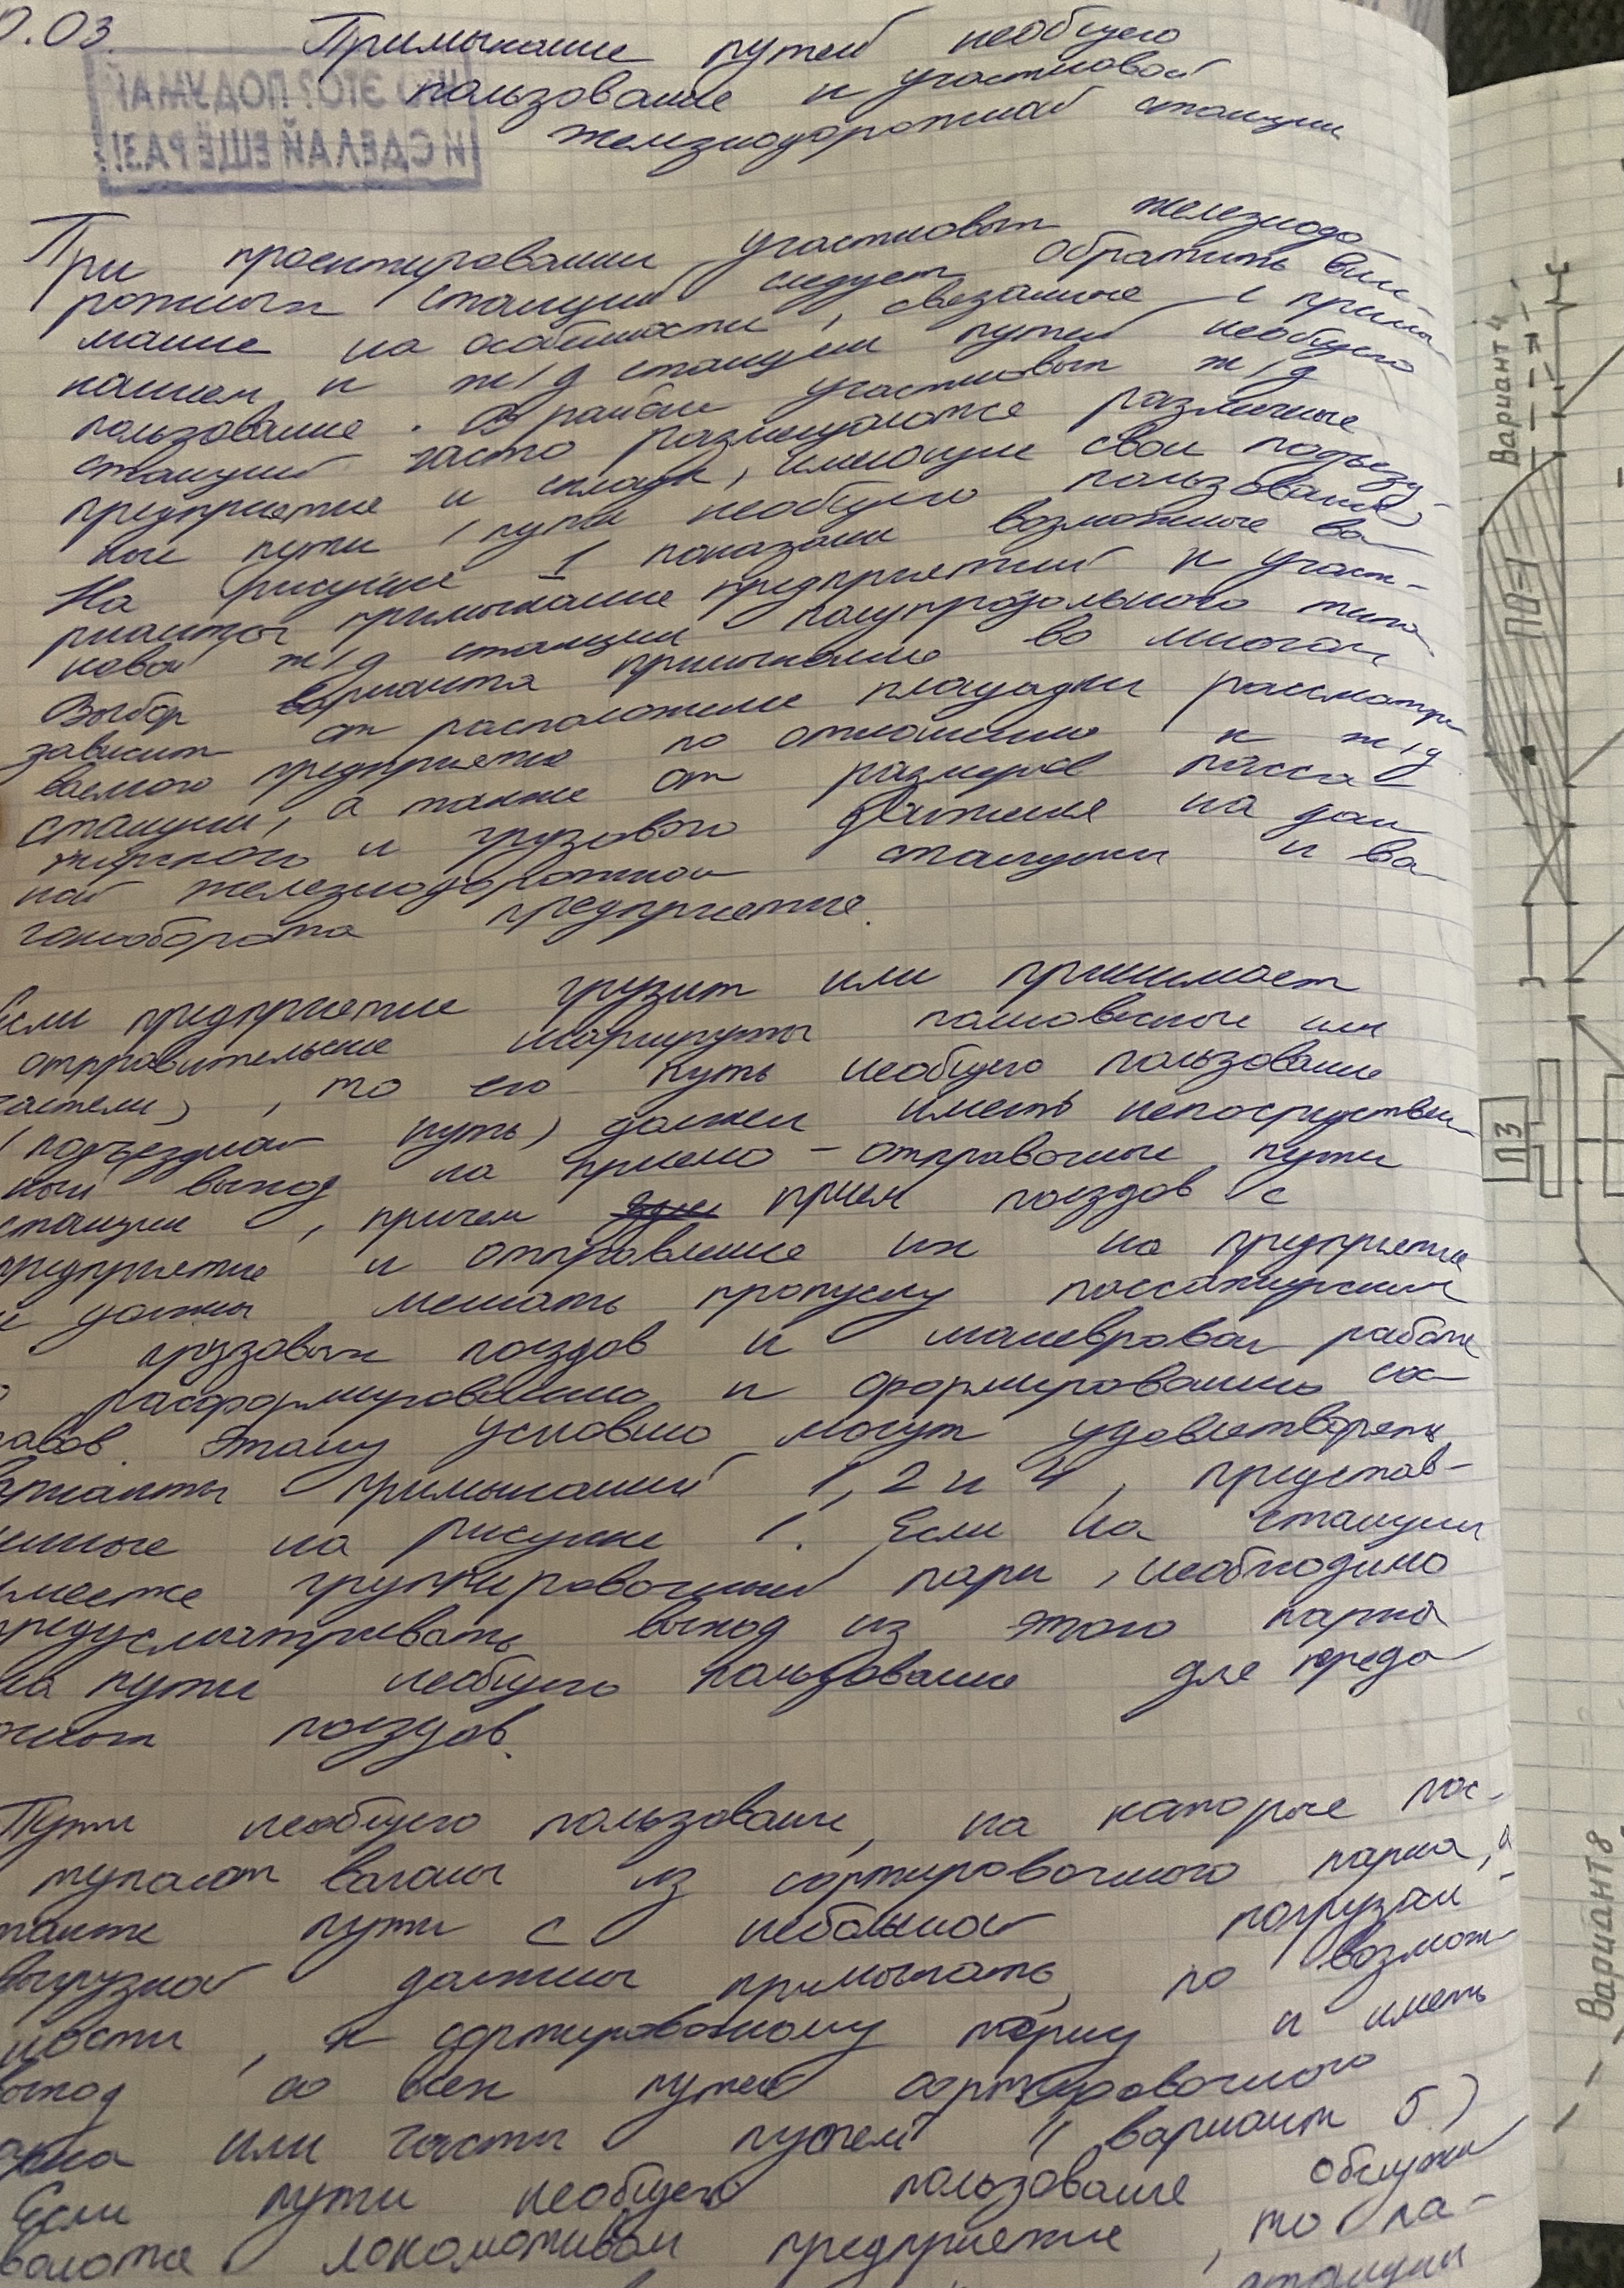 0.03.
Примыкание путей необщего
пользования к участковой
железнодорожной станции
ЧТО ЭТО? ПОДУМАЙ
И СДЕЛАЙ ЕЩЁ РАЗ!
При проектировании участковых железнодо-
рожных станций следует обратить вни-
мание на особенности, связанные с примы-
канием к ж/д станции путей необщего
пользования. В районе участковых ж/д
станций часто размещаются различные
предприятия и склады, имеющие свои подъезд-
ные пути (пути необщего пользования).
На рисунке 1 показаны возможные ва-
рианты примыкания предприятий к участ-
ковой ж/д станции полупродольного типа.
Выбор варианта примыкания во многом
зависит от расположения площадки рассматри-
ваемого предприятия по отношению к ж/д
станции, а также от размеров пасса-
жирского и грузового движения на дан-
ной железнодорожной станции и ва-
гонооборота предприятия.
Если предприятие грузит или принимает
отправительские маршруты полновесные или
частели), то его путь необщего пользования
(подъездной путь) должен иметь непосредствен-
ный выход на приемо-отправочные пути
станции, причем прием поездов с
предприятия и отправление их на предприятие
не должны мешать пропуску пассажирских
грузовых поездов и маневровой работе
расформированию и формированию сос-
тавов. Этому условию могут удовлетворять
варианты примыканий 1, 2 и 4, представ-
ленные на рисунке 1. Если на станции
имеется группировочный парк, необходимо
предусматривать выход из этого парка
на пути необщего пользования для переда-
точных поездов.
Пути необщего пользования, на которые пос-
тупают вагоны из сортировочного парка, а
также пути с небольшой погрузкой -
выгрузкой должны примыкать, по возмож-
ности, к сортировочному парку и иметь
выход со всех путей сортировочного
парка или части путей (вариант 5)
Если пути необщего пользования обслужи-
ваются локомотивом предприятия, то на-
станции
Вариант 4
ПО=1
ПЗ
Вариант 8